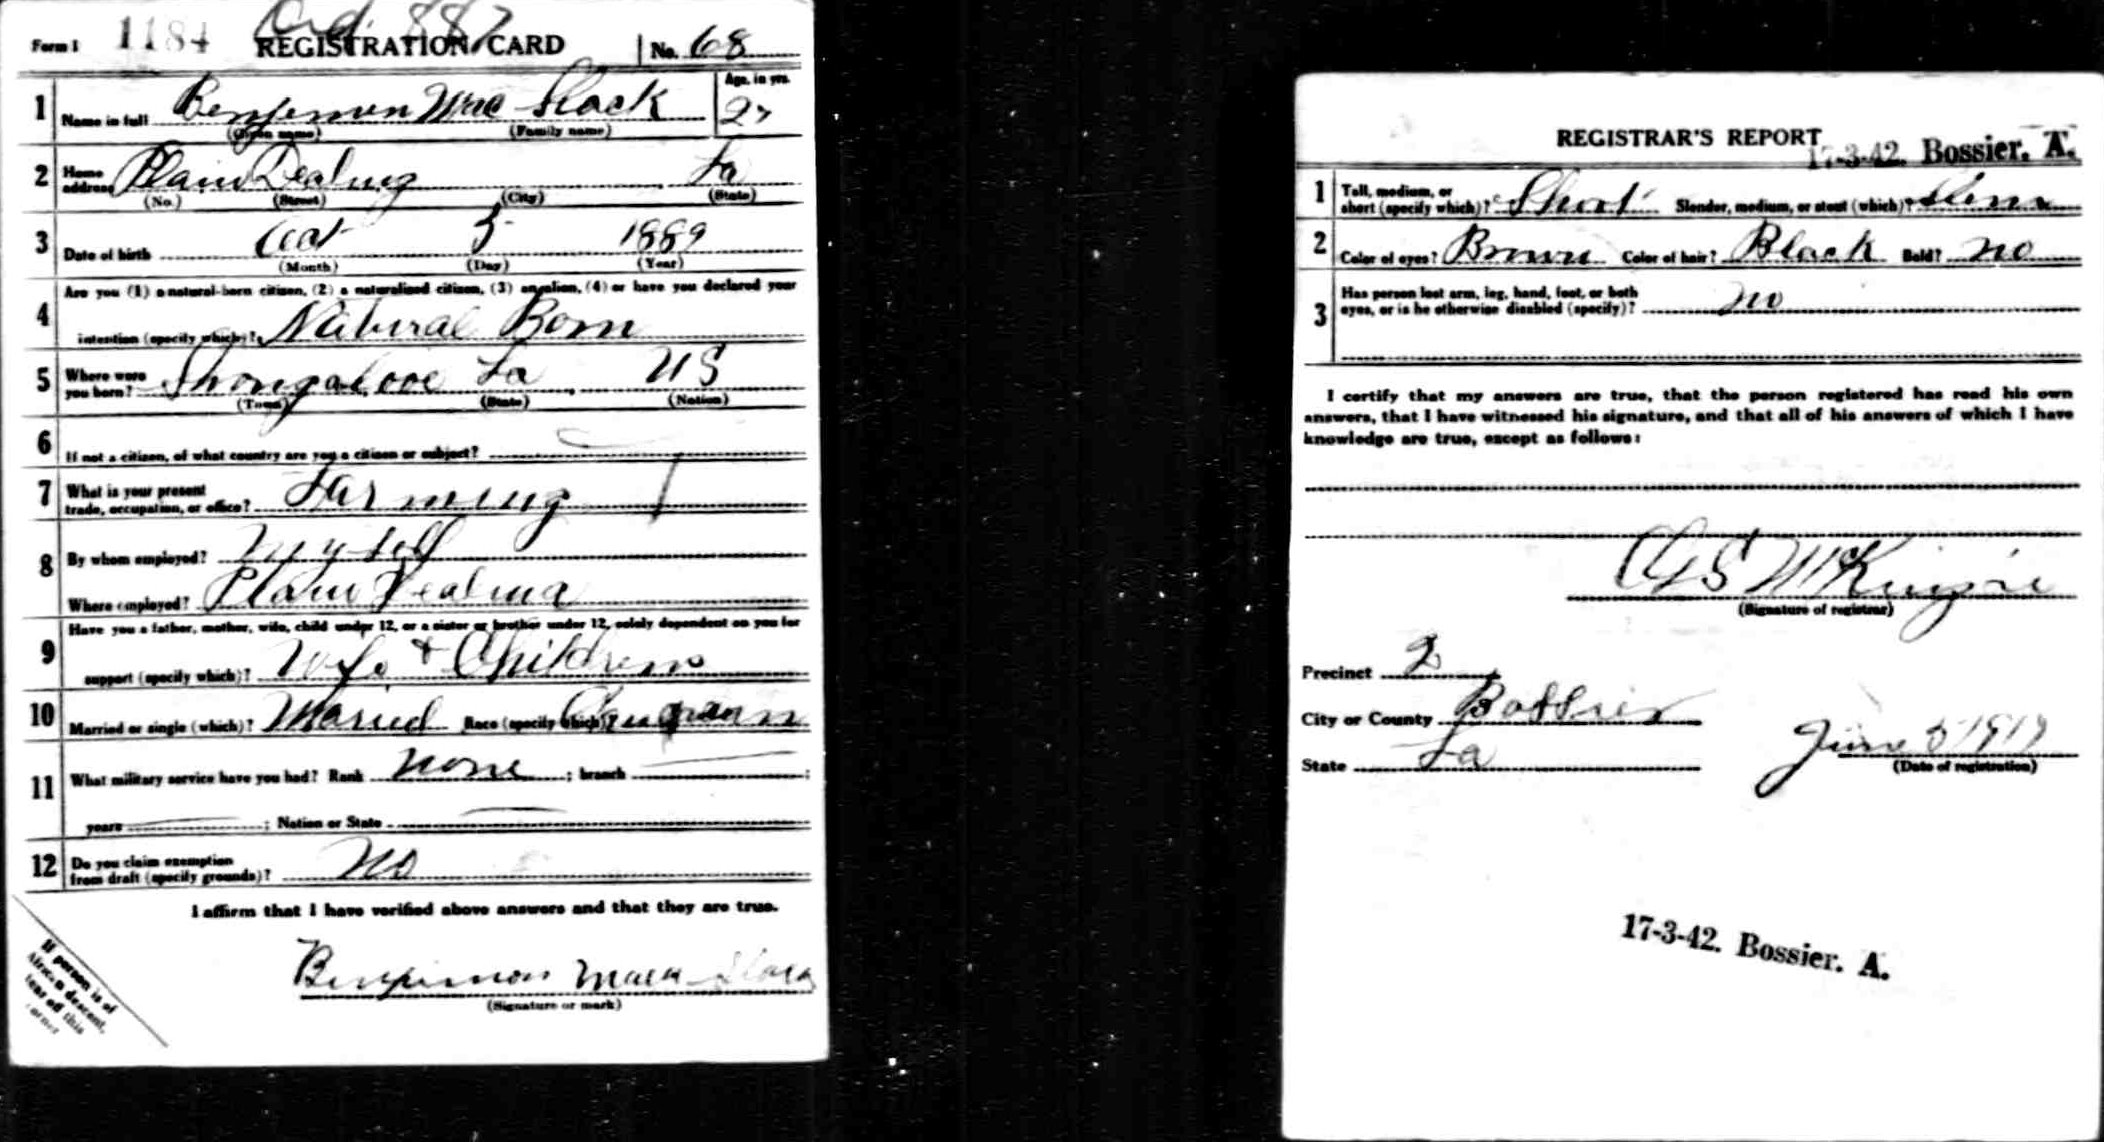 Form 1 1184 Ord. 887 REGISTRATION CARD No. 68
1 Name in full Benjemon Mac Slack Age, in yrs. 27
(Given name) (Family name)
2 Home address Plain Dealing La
(No.) (Street) (City) (State)
3 Date of birth Oct 5 1889
(Month) (Day) (Year)
Are you (1) a natural-born citizen, (2) a naturalized citizen, (3) an alien, (4) or have you declared your
4 intention (specify which)? Natural Born
5 Where were you born? Shongaloo La US
(Town) (State) (Nation)
6 If not a citizen, of what country are you a citizen or subject?
7 What is your present trade, occupation, or office? Farming
8 By whom employed? My self
Where employed? Plain Dealing
Have you a father, mother, wife, child under 12, or a sister or brother under 12, solely dependent on you for
9 support (specify which)? Wife & Childrens
10 Married or single (which)? Maried Race (specify which)?
11 What military service have you had? Rank None ; branch ;
years ; Nation or State
12 Do you claim exemption from draft (specify grounds)? No
I affirm that I have verified above answers and that they are true.
Benjimon Mack Slack
(Signature or mark)
If person is of
African descent,
tear off this
corner
REGISTRAR'S REPORT 17-3-42. Bossier. A.
1 Tall, medium, or short (specify which)? Short Slender, medium, or stout (which)?
2 Color of eyes? Brown Color of hair? Black Bald? No
3 Has person lost arm, leg, hand, foot, or both eyes, or is he otherwise disabled (specify)? No
I certify that my answers are true, that the person registered has read his own
answers, that I have witnessed his signature, and that all of his answers of which I have
knowledge are true, except as follows:
McKinzie
(Signature of registrar)
Precinct 2
City or County Bossier
State La
June 5 1917
(Date of registration)
17-3-42. Bossier. A.